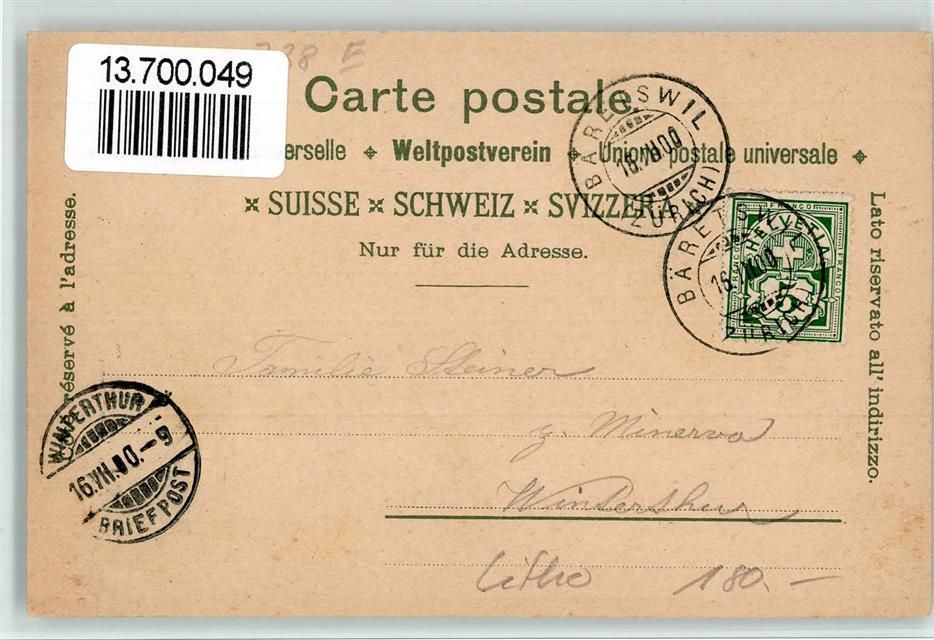 13.700.049
728 E
Carte postale.
erselle Weltpostverein Unione postale universale
SUISSE SCHWEIZ SVIZZERA
Nur für die Adresse.
réservé à l'adresse.
Lato riservato all' indirizzo.
BÄRETSWIL
16.VII.00
(ZÜRICH)
BÄRETSWIL
16.VII.00
(ZÜRICH)
FRANCO
HELVETIA
FRANCO
FRANCO
5
Familie Steiner
z. Minerva
Winterthur
WINTERTHUR
16.VII.00.-9
BRIEFPOST
Litho 180.-